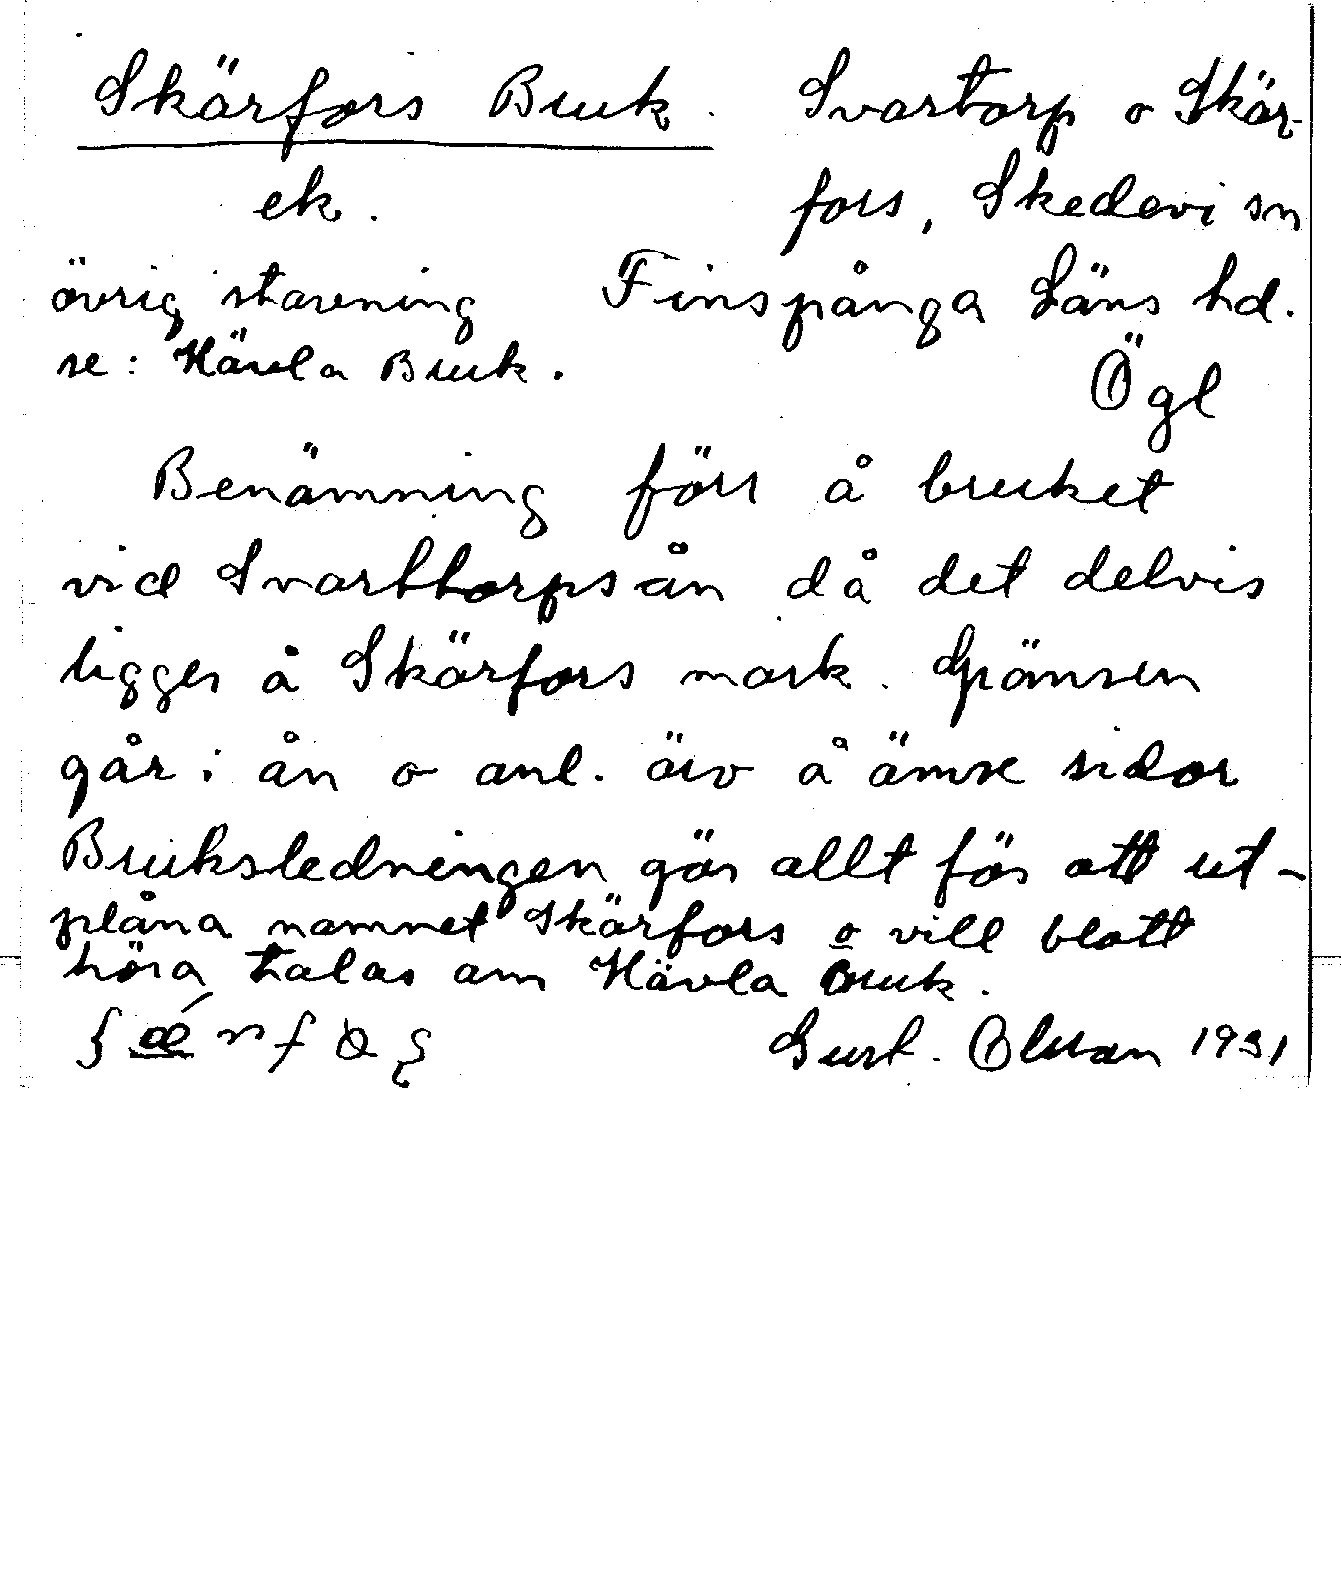 Skärfors Bruk. Svartorp o Skär-
ek. fors, Skedevi sn
övrig stavning Finspånga Läns hd.
se: Hävla Bruk. Ögl
Benämning förr å bruket
vid Svarttorpsån då det delvis
ligger å Skärfors mark. Gränsen
går i ån o anl. äro å ömse sidor
Bruksledningen gör allt för att ut-
plåna namnet Skärfors o vill blott
höra talas om Hävla Bruk.
Gust. Olsson 1931